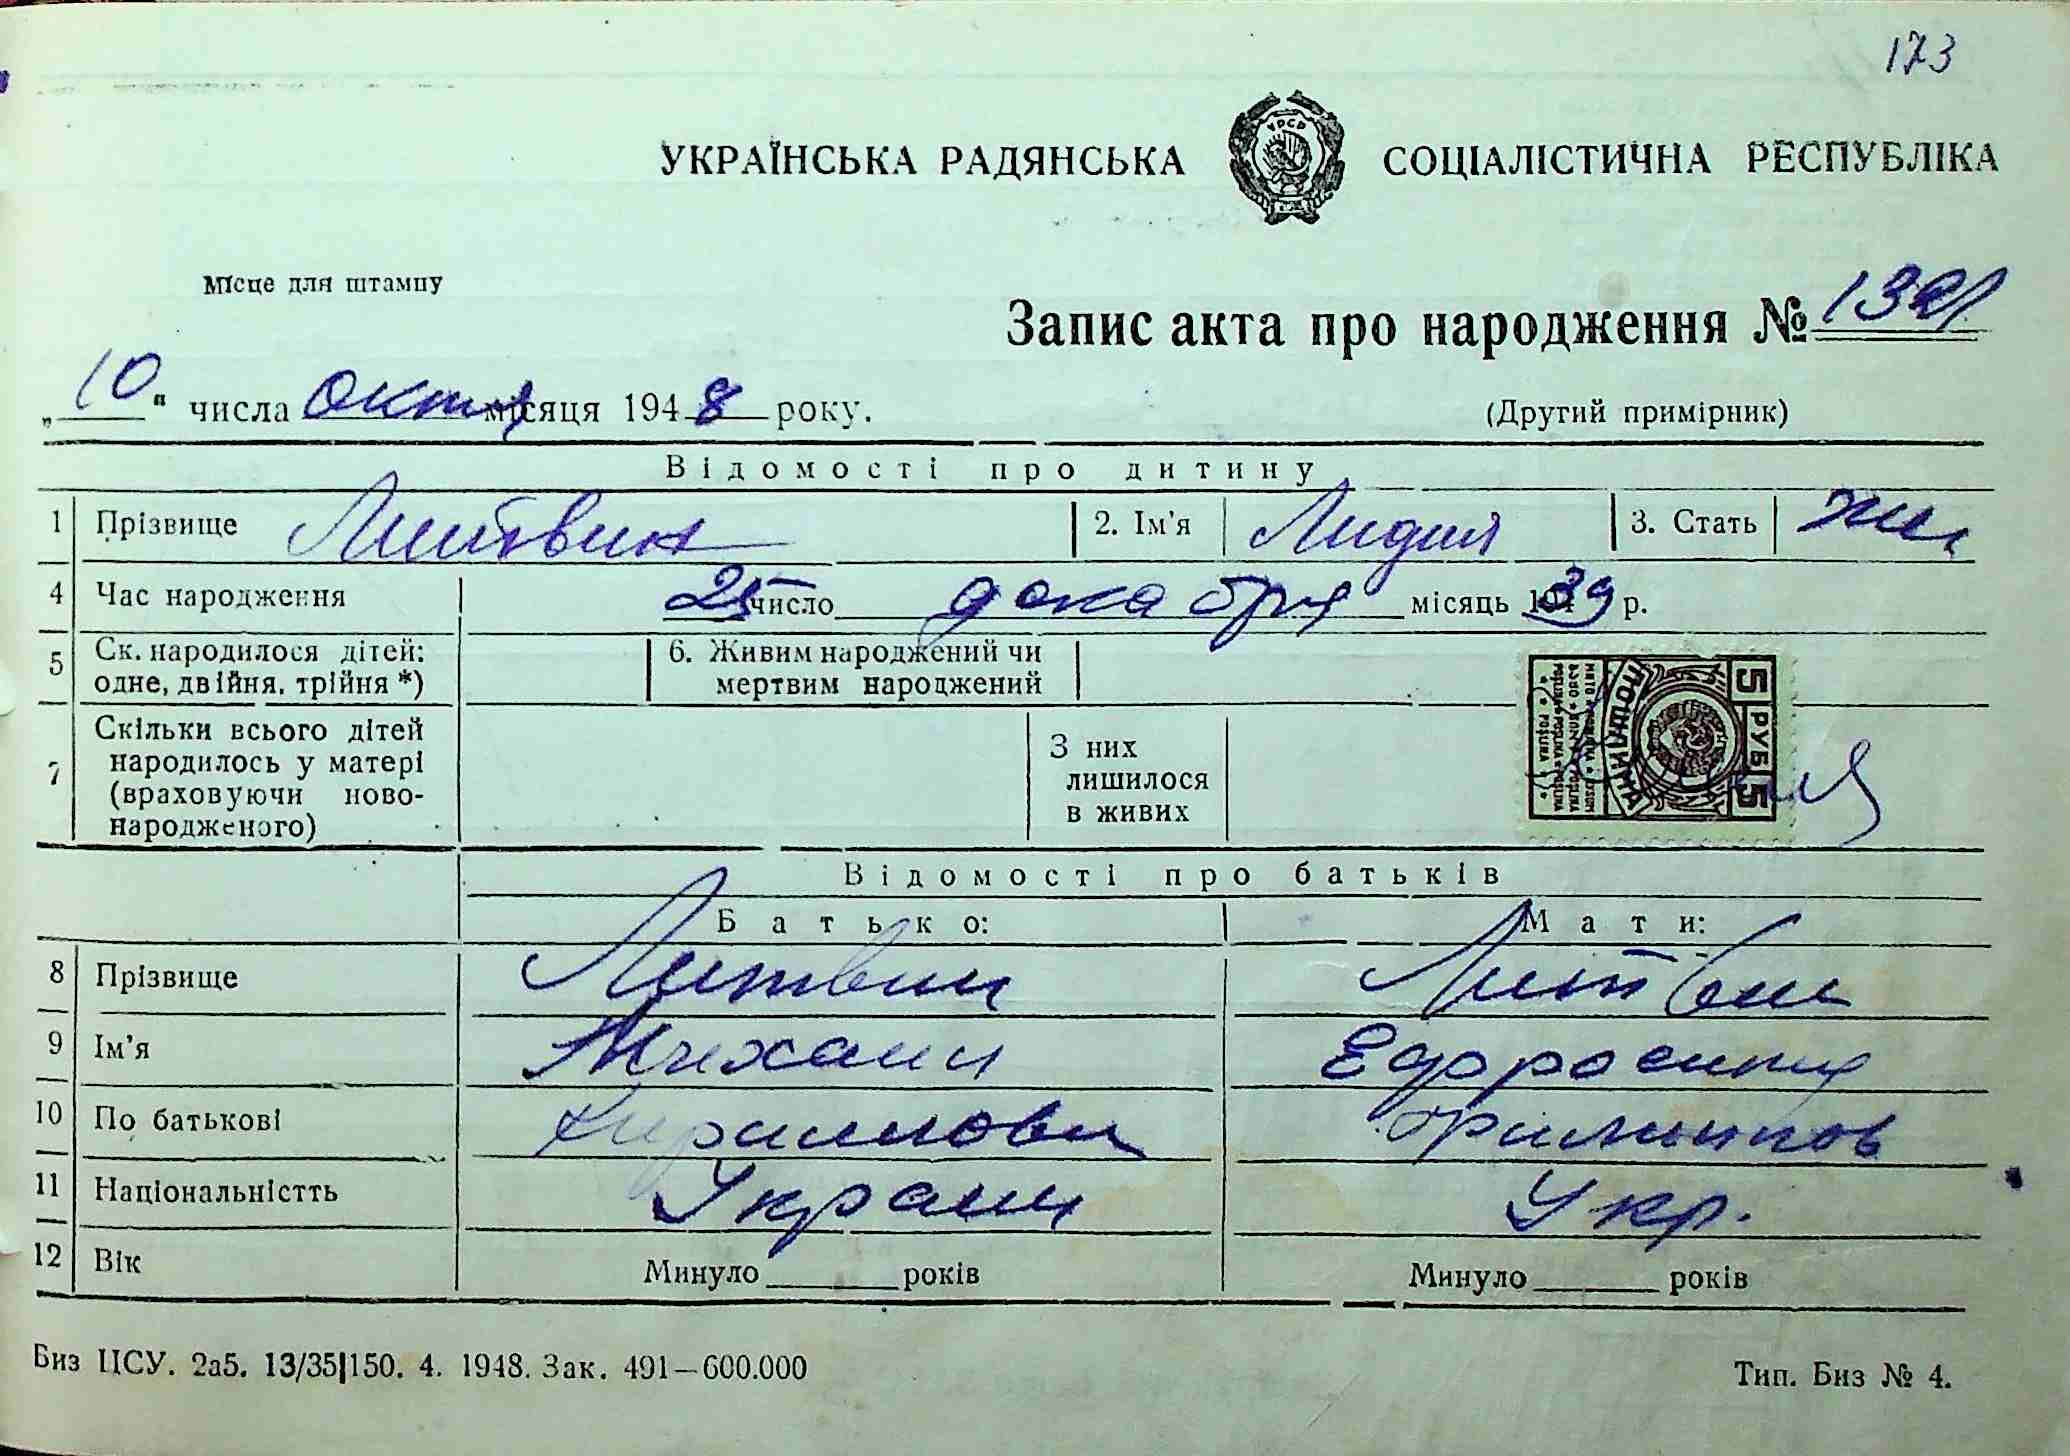 173
УКРАЇНСЬКА РАДЯНСЬКА СОЦІАЛІСТИЧНА РЕСПУБЛІКА
Місце для штампу
Запис акта про народження №
„10“ числа октя місяця 1948 року.
(Другий примірник)
Відомості про дитину
1 Прізвище Литвин 2. Ім'я Лидия 3. Стать жен
4 Час народження 25 число декабря місяць 1939 р.
5 Ск. народилося дітей: одне, двійня, трійня *) 6. Живим народжений чи мертвим народжений
7 Скільки всього дітей народилось у матері (враховуючи ново-народженого) З них лишилося в живих
5 РУБ 5
Відомості про батьків
Батько: Мати:
8 Прізвище Литвин Литвин
9 Ім'я Михаил Ефросиния
10 По батькові Кириллови
11 Національністть Украин Укр.
12 Вік Минуло років Минуло років
Биз ЦСУ. 2а5. 13/35|150. 4. 1948. Зак. 491—600.000 Тип. Биз № 4.